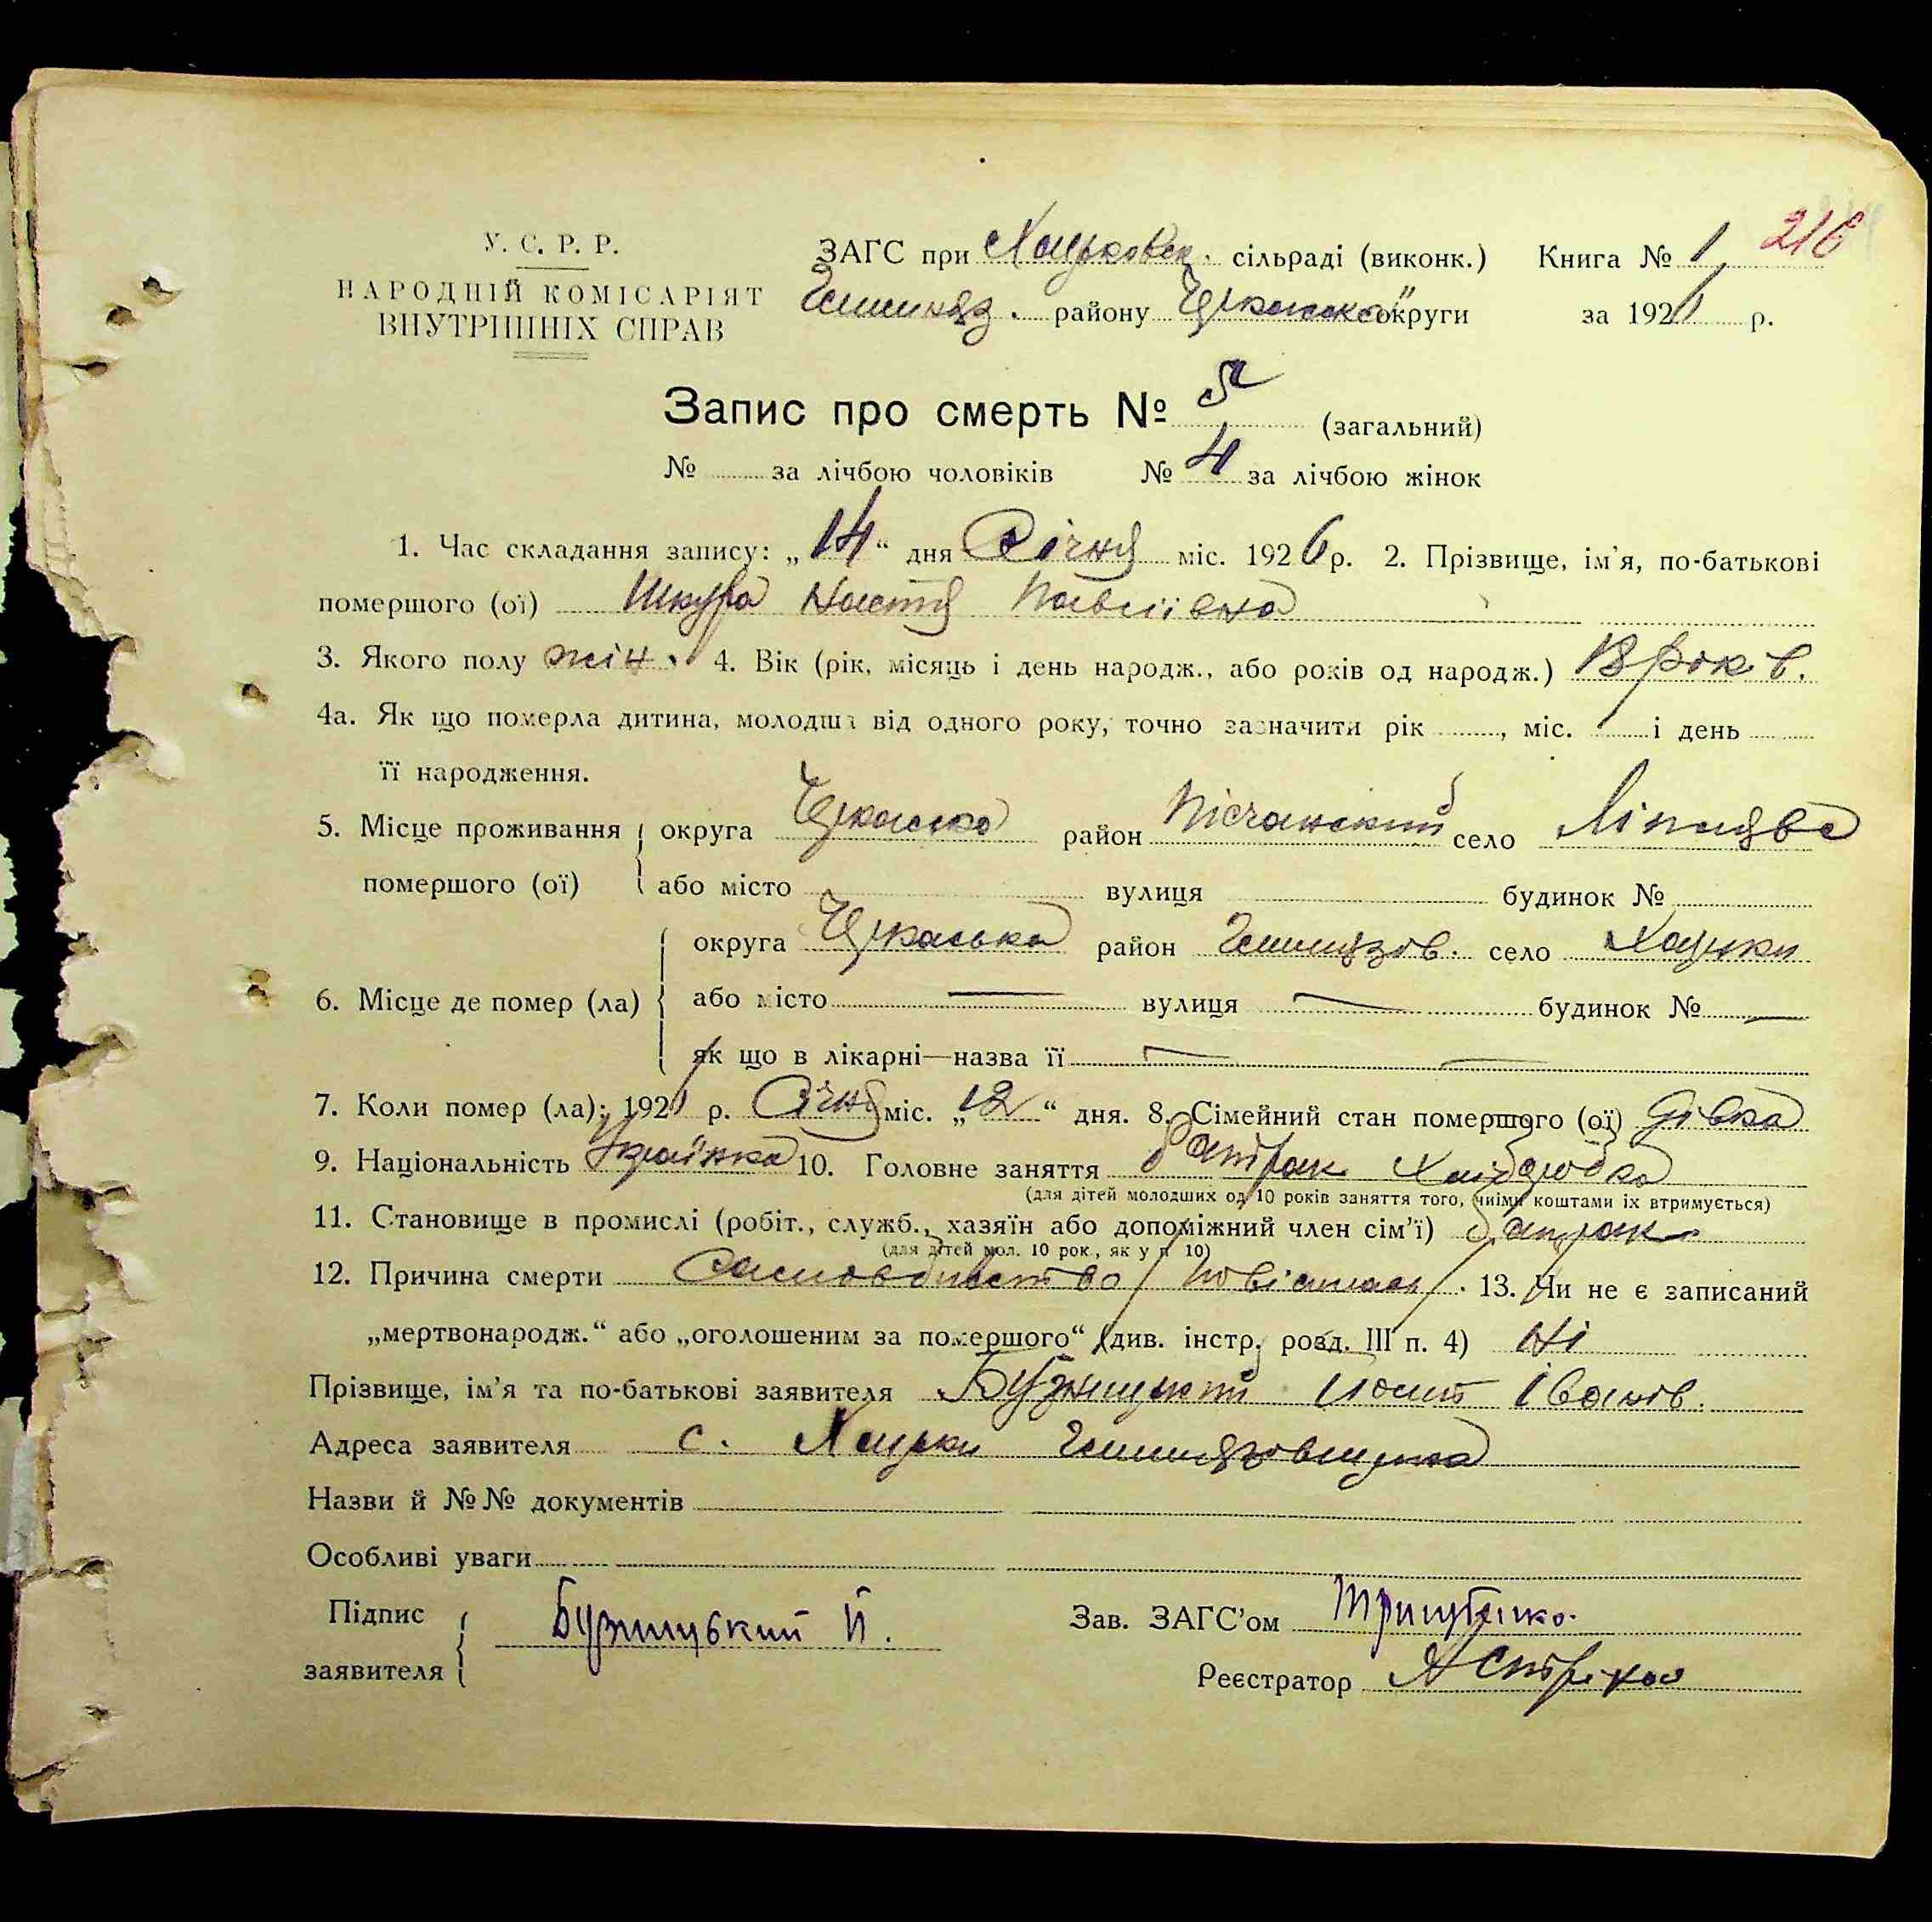 У. С. Р. Р.
НАРОДНІЙ КОМІСАРІЯТ
ВНУТРІШНІХ СПРАВ
ЗАГС при Хацьковск. сільраді (виконк.) Книга № 1 216
району Черкаської округи за 1926 р.
Запис про смерть № 5 (загальний)
№ за лічбою чоловіків № 4 за лічбою жінок
1. Час складання запису: „14“ дня Січня міс. 1926 р. 2. Прізвище, ім'я, по-батькові
помершого (ої) Шкура Настя Павлівна
3. Якого полу жін. 4. Вік (рік, місяць і день народж., або років од народж.) 18 років.
4а. Як що померла дитина, молодша від одного року, точно зазначити рік , міс. і день
її народження.
5. Місце проживання округа Черкаська район Пісчанский село
помершого (ої) або місто вулиця будинок №
округа Черкаська район село Хацьки
6. Місце де помер (ла) або місто вулиця будинок №
як що в лікарні—назва її
7. Коли помер (ла): 1926 р. Січня міс. „12“ дня. 8. Сімейний стан помершого (ої) дівка
9. Національність Українка 10. Головне заняття батрак Хліборобка
(для дітей молодших од 10 років заняття того, чиїми коштами їх втримується)
11. Становище в промислі (робіт., служб., хазяїн або допоміжний член сім'ї) батрак
(для дітей мол. 10 рок., як у п 10)
12. Причина смерти Самовбивство / Повісилась / . 13. Чи не є записаний
„мертвонародж.“ або „оголошеним за помершого“ (див. інстр. розд. III п. 4) Ні
Прізвище, ім'я та по-батькові заявителя Бузницький Йосип Іванов.
Адреса заявителя с. Хацьки
Назви й №№ документів
Особливі уваги
Підпис заявителя Бузницький Й. Зав. ЗАГС'ом
Реєстратор